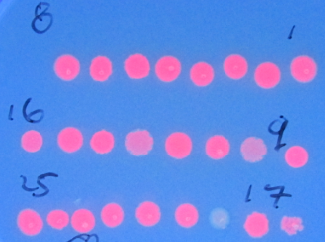 8 1
16 9
25 17